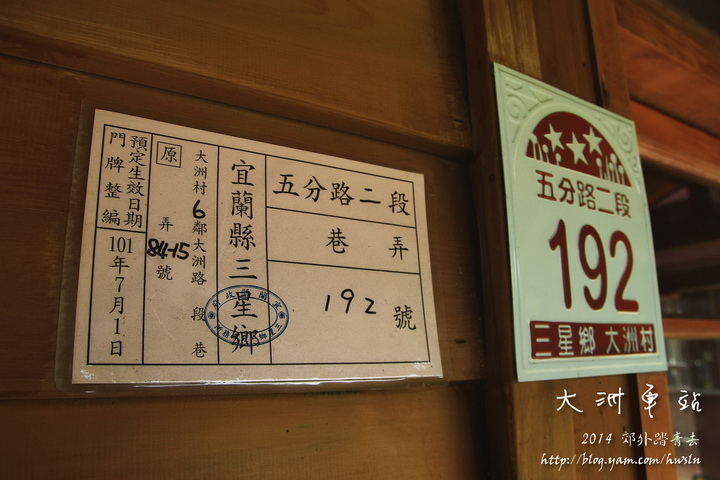 五分路二段
巷 弄
192 號
宜蘭縣三星鄉
原 大洲村6鄰大洲路 段 巷
弄 84-15 號
預定生效日期
門牌整編
101年7月1日
五分路二段
192
三星鄉 大洲村
大洲車站
2014 郊外踏青去
http://blog.yam.com/hwslu